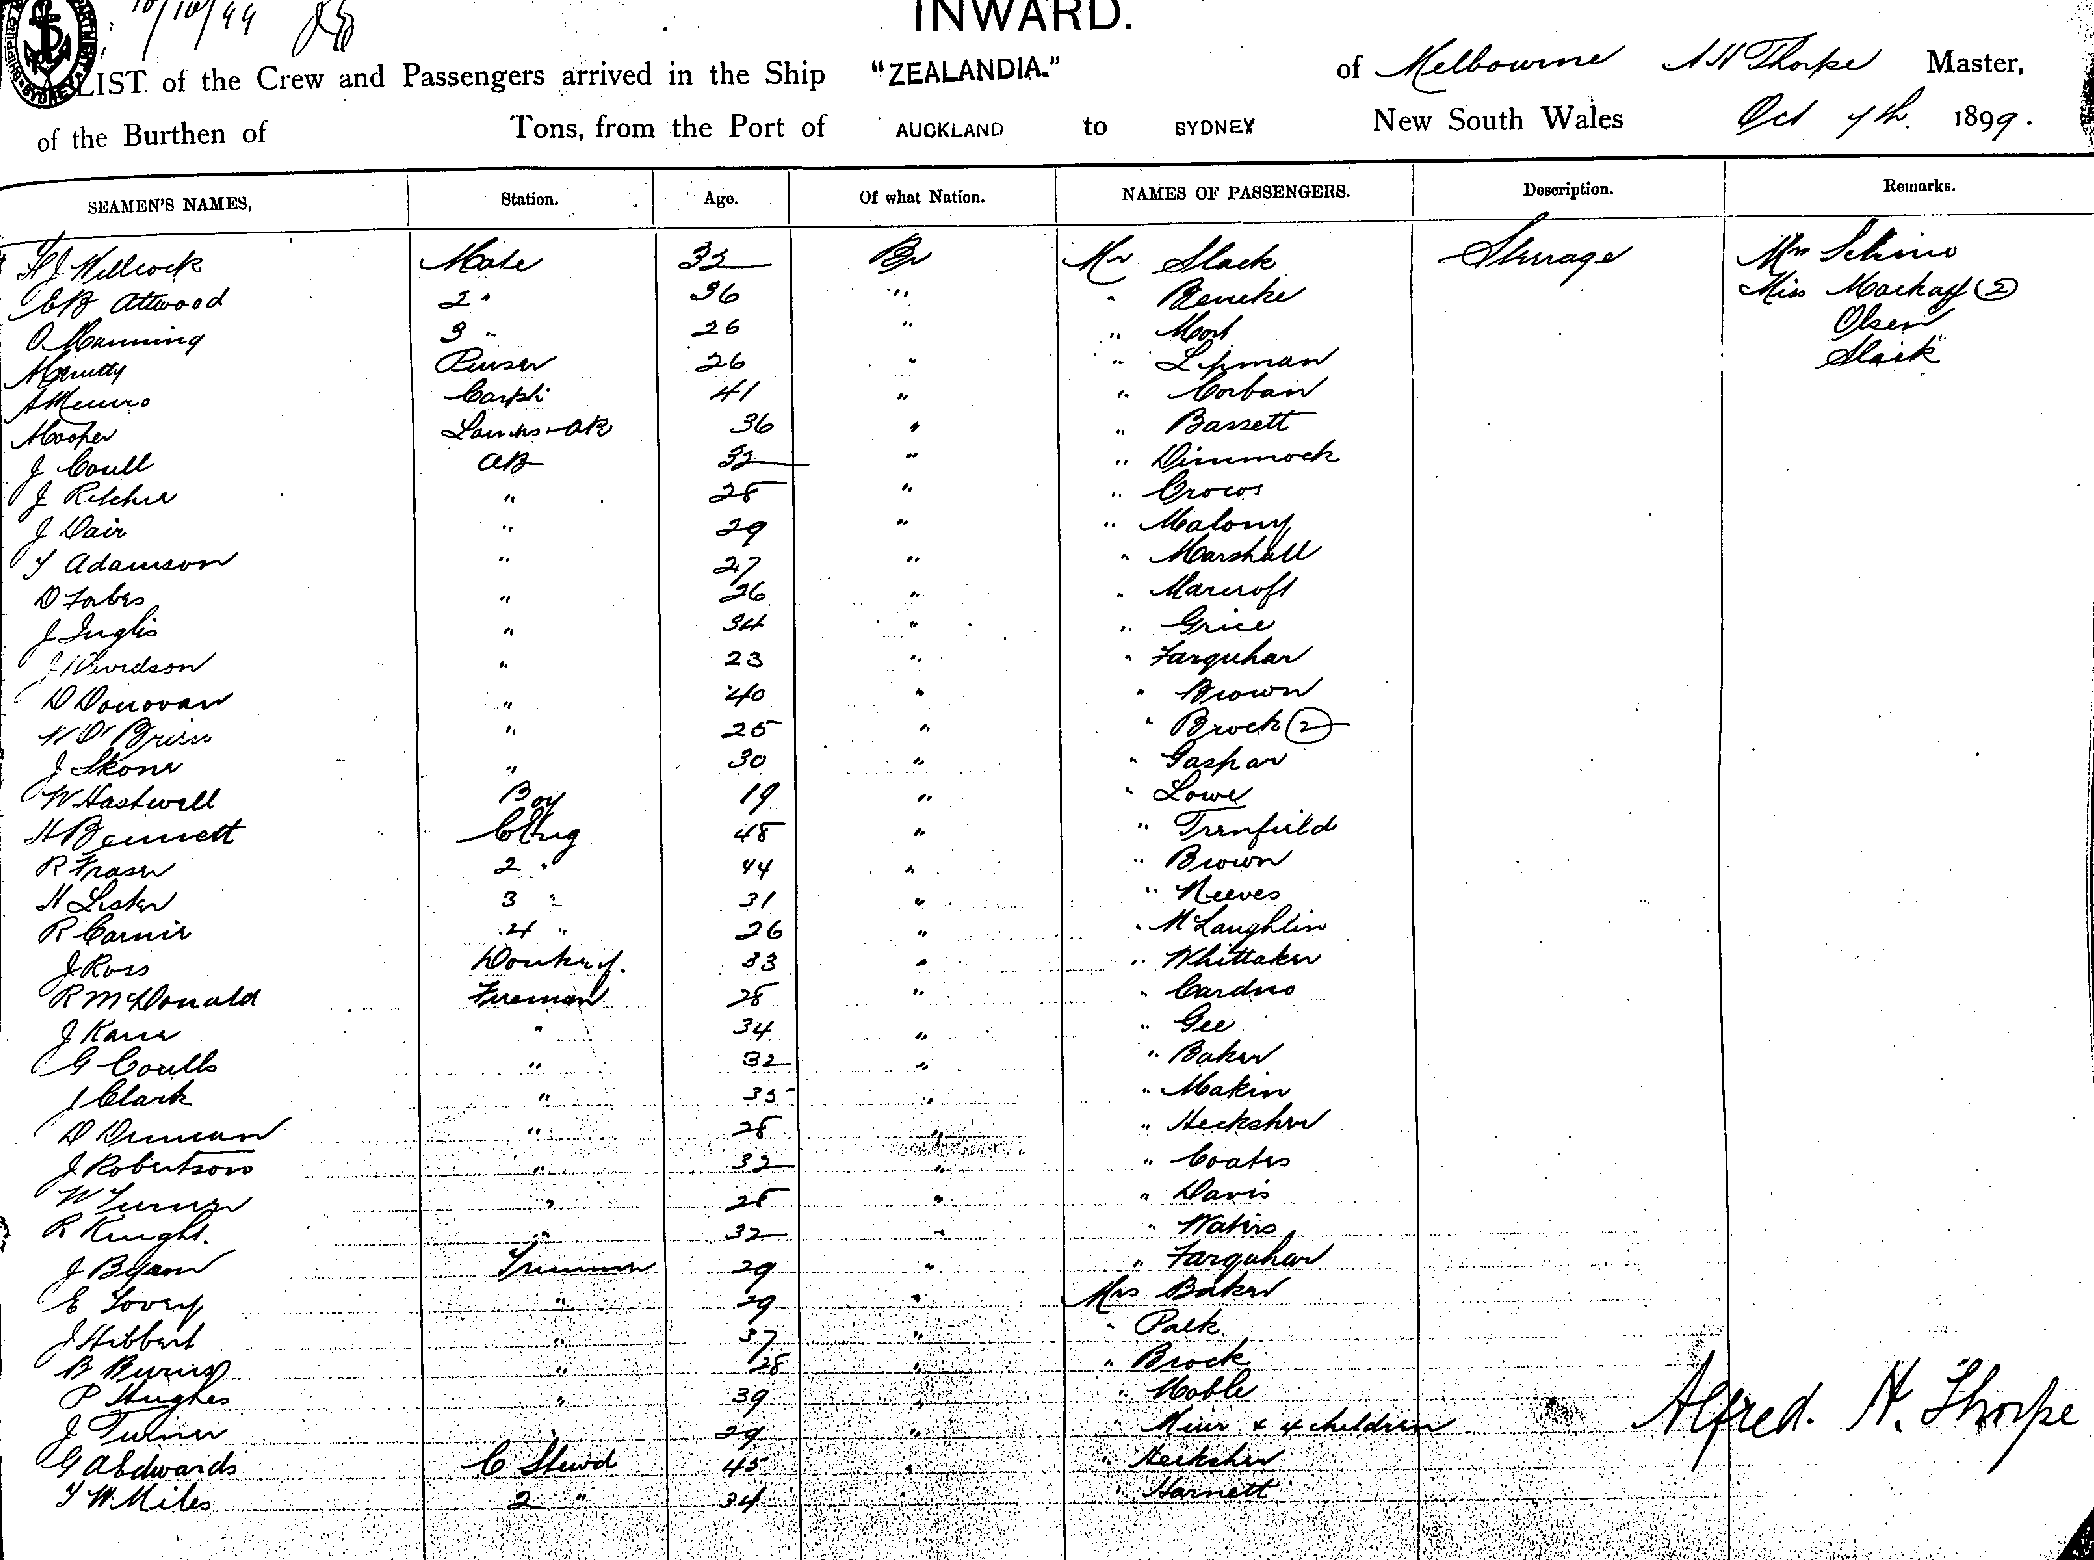 10/10/99
INWARD.
LIST of the Crew and Passengers arrived in the Ship "ZEALANDIA." of Melbourne A H Thorpe Master,
of the Burthen of Tons, from the Port of AUCKLAND to SYDNEY New South Wales Oct 7th. 1899.
SEAMEN'S NAMES, Station. Age. Of what Nation. NAMES OF PASSENGERS. Description. Remarks.
Mate 32 Br Mr Slack Steerage Mrs
E B Attwood 2 " 36 " " Beneke Miss Mackay (2)
O Manning 3 " 26 " " Mort Olsen
Purser 26 " " Lipman Slack
A Munro Carptr 41 " " Corban
Lamps-AB 36 " " Bassett
J Coull AB 32 " " Dimmock
J Ritchie " 28 " " Crocos
J Dair " 29 " " Malony
T Adamson " 27 " " Marshall
D Forbes " 26 " " Marcroft
J Inglis " 34 " " Grice
J Davidson " 23 " " Farquhar
D Donovan " 40 " " Brown
W O'Brien " 25 " " Brock (2)
J Skone " 30 " " Gaspar
W Hastwell Boy 19 " " Lowe
H Bennett C Eng 48 " " Trenfield
R Fraser 2 " 44 " " Brown
H Lister 3 " 31 " " Neeves
R Carnie 4 " 26 " " McLaughlin
J Ross Donkey. 33 " " Whittaker
R McDonald Fireman 28 " " Cardno
J Kane " 34 " " Gee
G Coulls " 32 " " Baker
J Clark " 35 " " Makin
D Duncan " 28 " " Hecksher
J Robertson " 32 " " Coates
W Turner " 28 " " Davis
R Knight. " 32 " " Waters
J Byam Trimmer 29 " " Farquhar
E Tovey " 29 " Mrs Baker
J Hibbert " 37 " " Palk
B Burns " 28 " " Brock
P Hughes " 39 " " Noble
J Turner " 29 " " Muir & 4 children
G A Edwards C Stewd 45 " " Hecksher
T W Miles 2 " 34 " " Harnett
Alfred. H. Thorpe